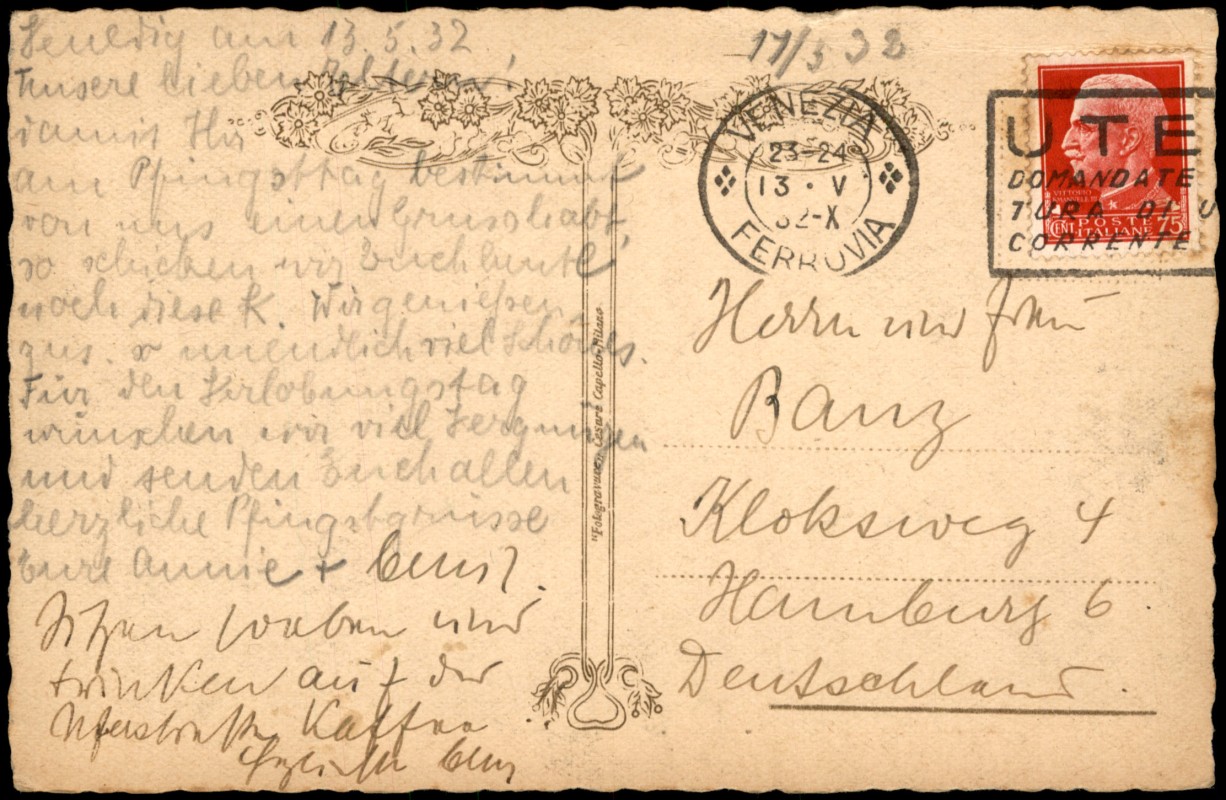 Venedig am 13.5.32
Unsere lieben Eltern!
damit Ihr
am Pfingsttag bestimmt
von uns einen Gruss habt,
so schicken wir Euch heute
noch diese K. Wir genießen
zus. unendlich viel Schönes.
Für den Verlobungstag
wünschen wir viel Vergnügen
und senden Euch allen
herzliche Pfingstgrüsse
Eure Annie +
Sitzen soeben und
trinken auf der
Uferstraße Kaffee
17/5 32
VENEZIA
23-24
13 · V
32-X
FERROVIA
UTE
DOMANDATE
TURA DI U
CORRENTE
VITTORIO
EMANUELE III
POSTE
ITALIANE
CENT 75
"Fotogravure" Cesare Capello-Milano
Herrn und Frau
Banz
Kloksweg 4
Hamburg 6
Deutschland.